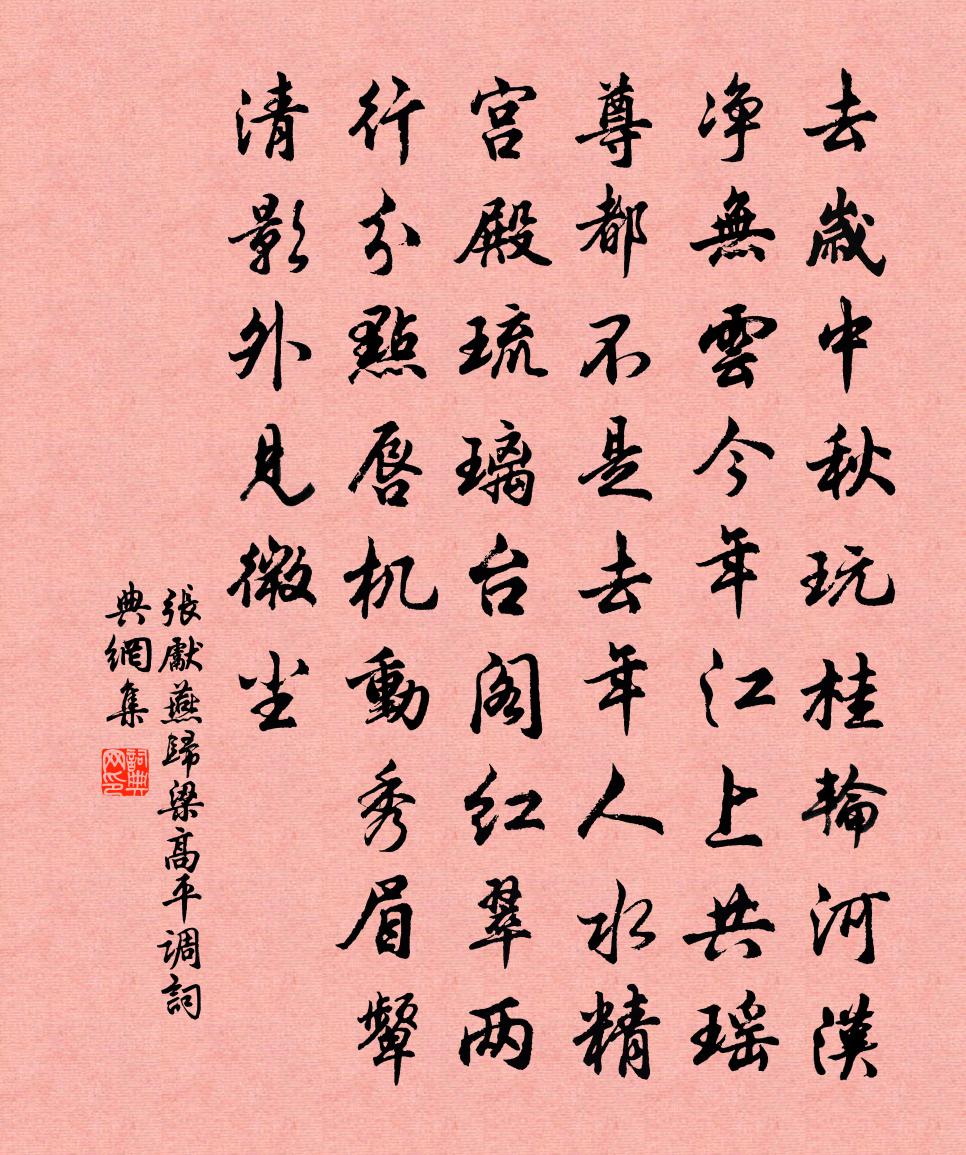 去歲中秋玩桂輪河漢
净無雲今年江上共瑶
尊都不是去年人水精
宫殿琉璃台阁红翠两
行分點唇机動秀眉顰
清影外见微尘
張獻燕歸梁高平调詞
典網集
詞典
网